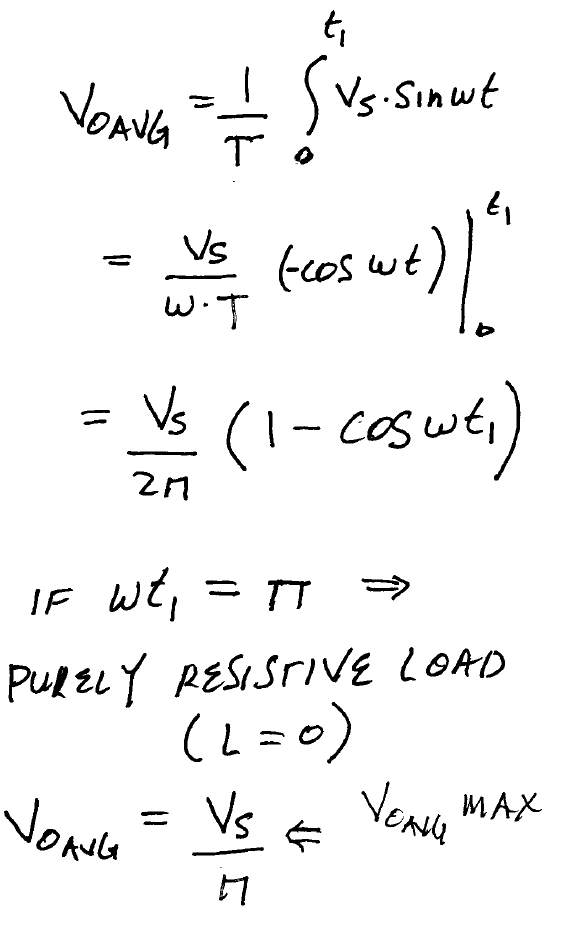 V_OAVG = 1/T ∫₀^t₁ Vs·Sinωt
= Vs/(ω·T) (-cos ωt) |₀^t₁
= Vs/2π (1 - cos ωt₁)
IF ωt₁ = π ⇒
PURELY RESISTIVE LOAD
(L = 0)
V_OAVG = Vs/π ⇐ V_OAVG MAX